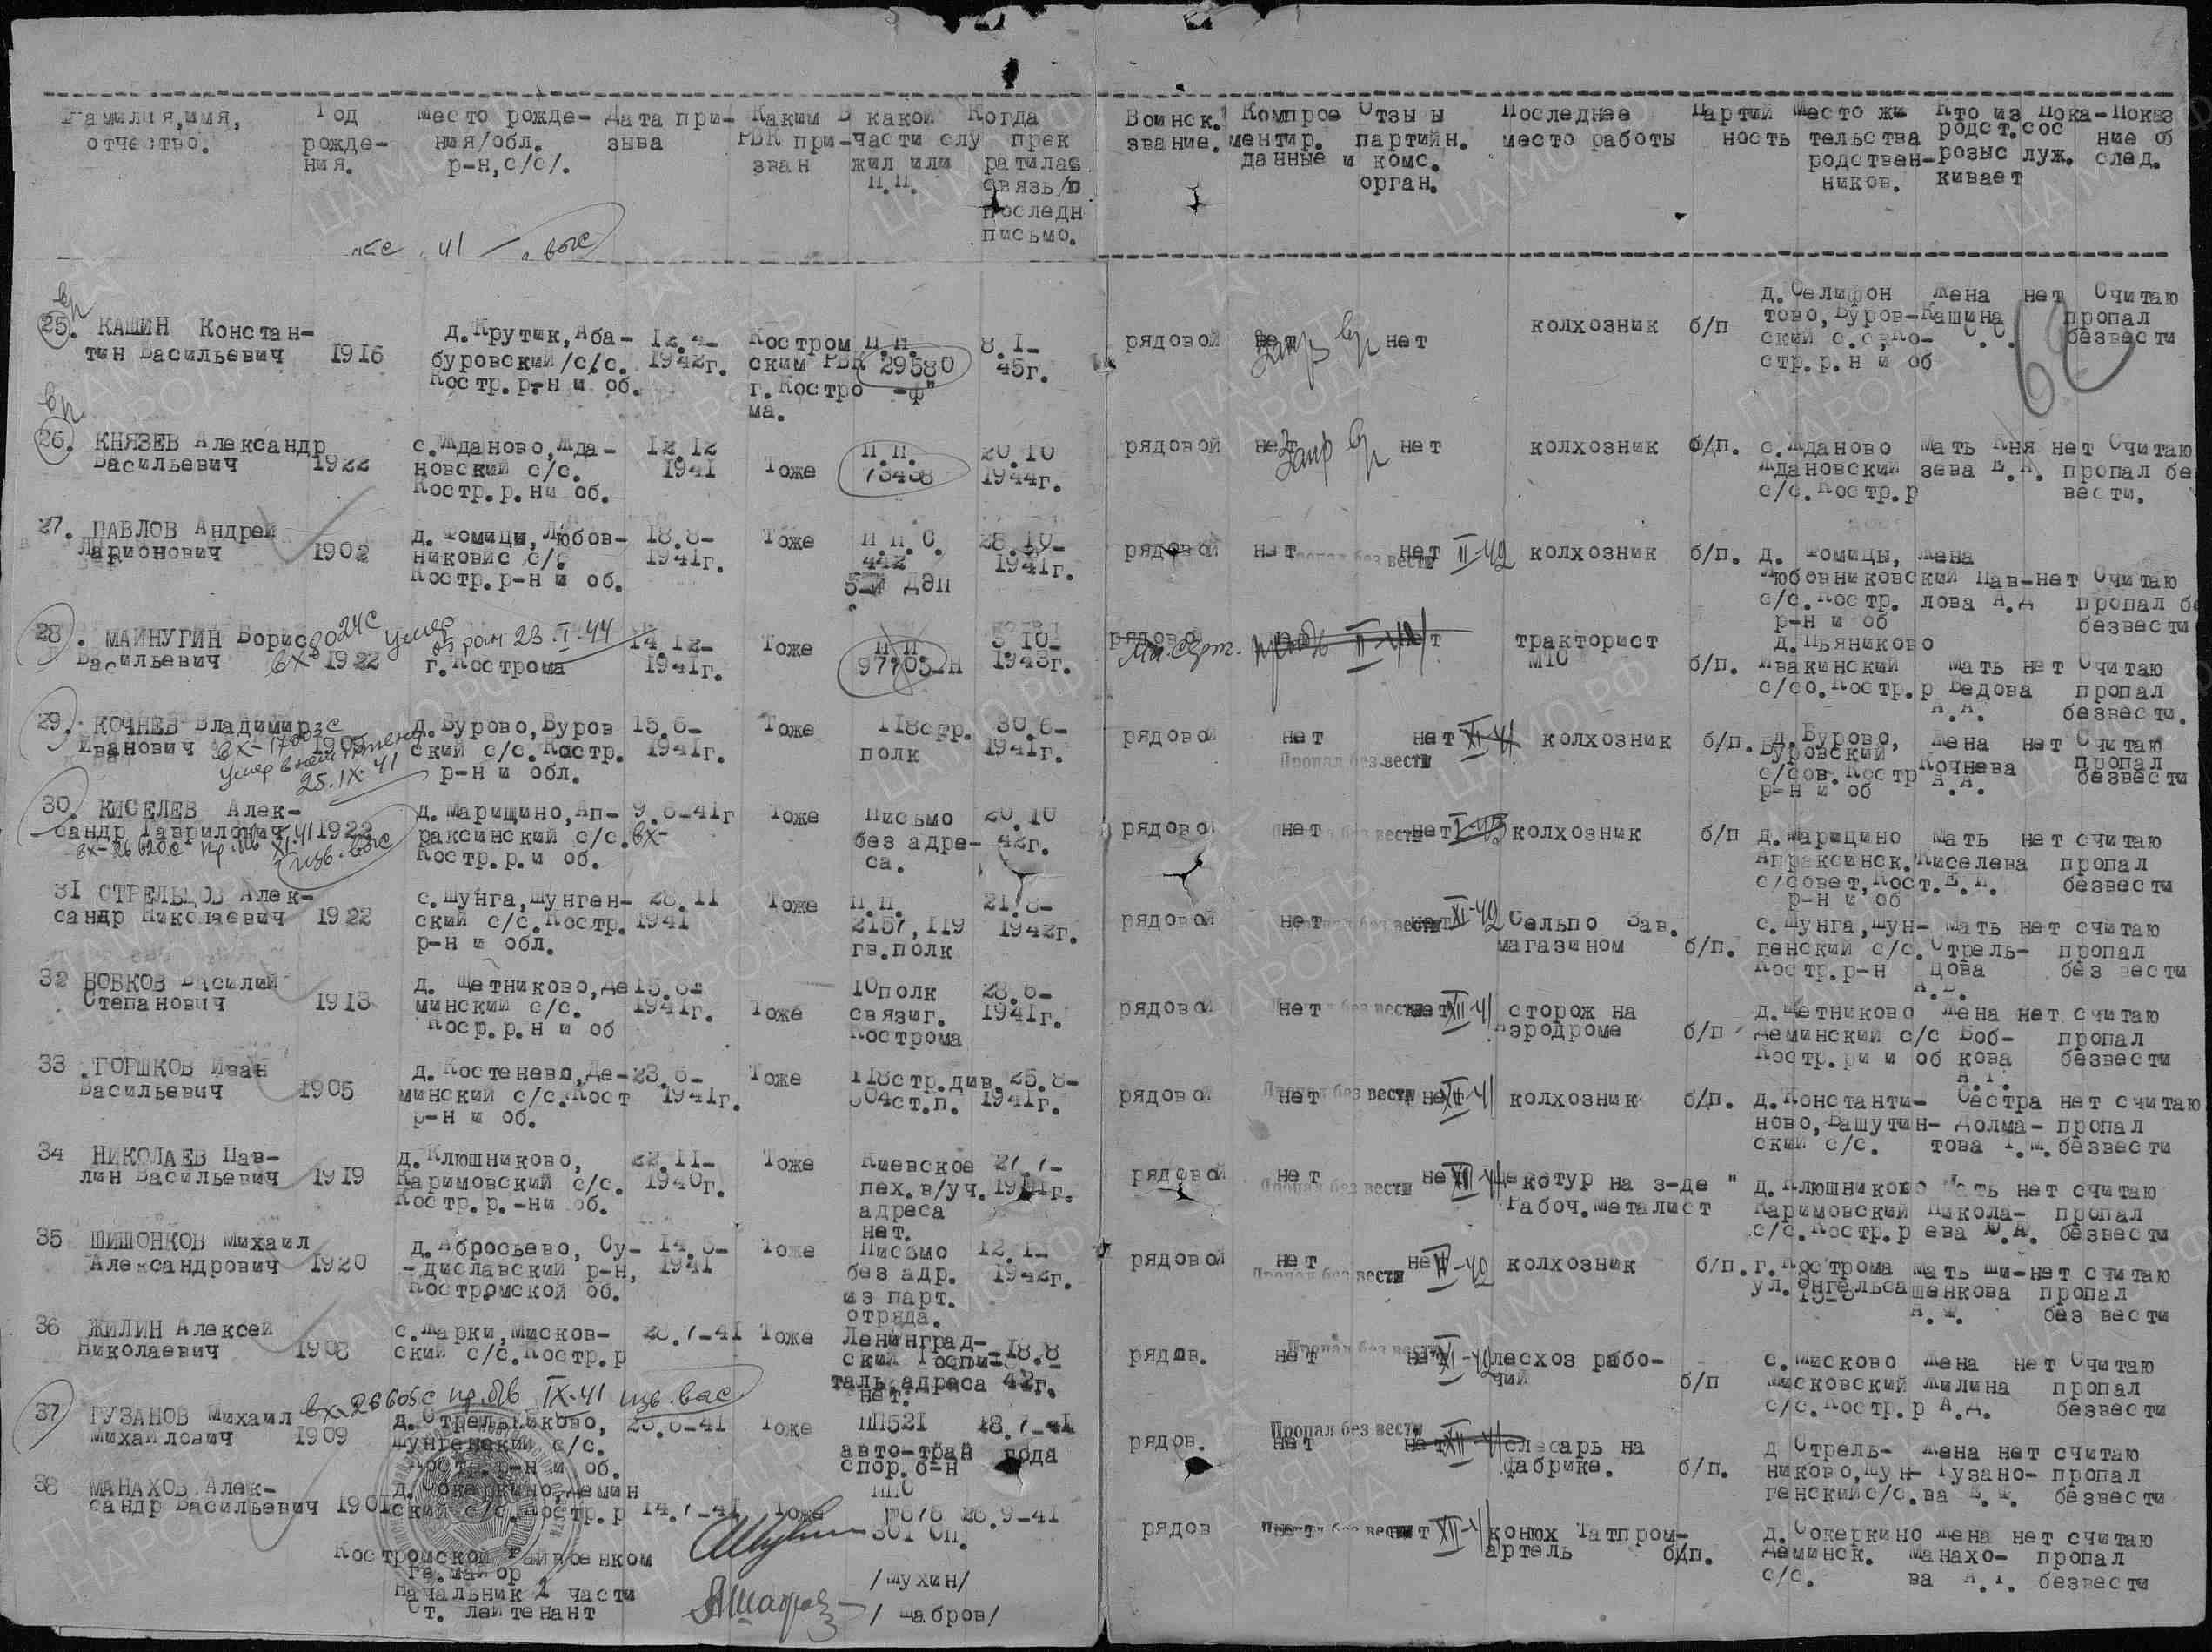 Фамилия, имя, отчество. Год рожде- ния. Место рожде- ния/обл. р-н, с/с/. Дата при- зыва Каким РВК при- зван В какой части слу жил или п.п. Когда прек ратилась связь/п последн письмо. Воинск. звание. Компрое ментир. данные Отзывы партийн. и комс. орган. Последнее место работы Партий ность Место жи тельства родствен- ников. Кто из родст. розыс кивает Пока- Показ ние об след.
25. КАШИН Констан-
тин Васильевич 1916 д.Крутик, Аба-
буровский/с/с.
Костр.р-н и об. 12.4-
1942г. Костром
ским РВК
г.Костро
ма. п.п.
29580
-ф" 8.1-
45г. рядовой нет нет колхозник б/п д.Селифон
тово, Буров-
ский с.с, Ко-
стр.р.н и об жена
Кашина
С.С. нет Считаю
пропал
безвести
26. КНЯЗЕВ Александр
Васильевич 1922 с.Жданово, Жда-
новский с/с.
Костр.р.ни об. 12.12
1941 Тоже п.п.
73438 20.10
1944г. рядовой нет нет колхозник б/п. с.Жданово
Ждановский
с/с.Костр.р мать Кня
зева нет Считаю
пропал бе
вести.
27. ПАВЛОВ Андрей
Ларионович 1902 д. Фомицы, Любов-
никовйс с/с
Костр.р-н и об. 18.8-
1941г. Тоже п.п.с.
442
5-й ДЭП 28.10-
1941г. рядовой нет Пропал без вести нет II-42 колхозник б/п. д. Фомицы,
Любовниковский
с/с.Костр.
р-н и об жена
Пав-
лова А.Д нет Считаю
пропал бе
безвести
28. МАЙНУГИН Борис
Васильевич 1922 г.Кострома 14.12-
1941г. Тоже п п
97705-Н 5.10-
1943г. рядовой тракторист
МТС б/п. д.Пьяниково
Ивакинский
с/со.Костр.р мать
Бедова
А.А. нет Считаю
пропал
безвести.
вх 8024с умер от ран 23.I.44
29. КОЧНЕВ Владимир
Иванович д.Бурово, Буров
ский с/с. Костр.
р-н и обл. 15.6-
1941г. Тоже 118стр.
полк 30.6-
1941г. рядовой нет Пропал без вести нет XI-41 колхозник б/п. д.Бурово,
Буровский
с/сов. Костр
р-н и об жена
Кочнева
А.А. нет Считаю
пропал
безвести
25.IX-41
30. КИСЕЛЕВ Алек-
сандр Гаврилович 1922 д.Марицино, Ап-
раксинский с/с.
Костр.р.и об. 9.6-41г Тоже Письмо
без адре-
са. 20.10
42г. рядовой нет нет I-43 колхозник б/п д.Марицино
Апраксинск.
с/совет, Кост.
р-н и об мать
Киселева нет считаю
пропал
безвести
31 СТРЕЛЬЦОВ Алек-
сандр Николаевич 1922 с.Шунга, Шунген-
ский с/с.Костр.
р-н и обл. 28.11
1941 Тоже п.п.
2157,119
гв.полк 21.8-
1942г. рядовой нет нет XI-42 Сельпо Зав.
магазином б/п. с.Шунга, Шун-
генский с/с.
Костр.р-н мать
Стрель-
цова нет считаю
пропал
без вести
32 БОБКОВ Василий
Степанович 1913 д. Щетниково, Де
минский с/с.
Коср.р.н и об 15.6-
1941г. Тоже 10полк
связиг.
Кострома 28.6-
1941г. рядовой нет нет XII-41 сторож на
аэродроме б/п д.Щетниково
Деминский с/с
Костр.ри и об жена
Боб-
кова
А.Г. нет считаю
пропал
безвести
33 ГОРШКОВ Иван
Васильевич 1905 д.Костенево, Де-
минский с/с.Кост
р-н и об. 23.6-
1941г. Тоже 118стр.див.
604ст.п. 25.8-
1941г. рядовой нет нет XII-41 колхозник б/п. д.Константи-
ново, Вашутин-
ский с/с. Сестра
Долма-
това нет считаю
пропал
безвести
34 НИКОЛАЕВ Пав-
лин Васильевич 1919 д.Клюшниково,
Каримовский с/с.
Костр.р.-ни об. 22.11-
1940г. Тоже Киевское
пех.в/уч.
адреса
нет. 27.7-
1941г. рядовой нет Пропал без вести нет на з-де "
Рабоч.металист д.Клюшниково
Каримовский
с/с.Костр.р мать
Никола-
ева нет считаю
пропал
безвести
35 ШИШОНКОВ Михаил
Александрович 1920 д.Абросьево, Су-
-диславский р-н,
Костромской об. 14.5-
1941 Тоже Письмо
без адр.
из парт.
отряда. 12.1-
1942г. рядовой нет Пропал без вести нет колхозник б/п. г.Кострома
ул.Энгельса мать Ши-
шенкова нет считаю
пропал
без вести
36 ЖИЛИН Алексей
Николаевич 1908 с.Жарки, Мисков-
ский с/с.Костр.р 28.7-41 Тоже Ленинград-
ский Госпи-
таль, адреса
нет. 18.8
42г. рядов. нет Пропал без вести нет XI-42 лесхоз рабо-
чий б/п с.Мисково
Мисковский
с/с.Костр.р жена
Жилина
А.Д. нет Считаю
пропал
безвести
вх-26605с пр.б/в IX-41
37 ГУЗАНОВ Михаил
Михайлович 1909 д.Стрельниково,
Шунгенский с/с.
Костр.р-н и об. 23.6-41 Тоже ПП521
авто-тран
спор.б-н 18.7-41
года рядов. нет Пропал без вести нет XII-41 слесарь на
фабрике. б/п. д Стрель-
никово, Шун-
генский с/с. жена
Гузано-
ва нет считаю
пропал
безвести
38 МАНАХОВ Алек-
сандр Васильевич 1901 д.Сокеркино, Демин
ский с/с.Костр.р 14.7-41 Тоже ППС
676
301 сп. 26.9-41 рядов нет XII-41 конюх Татпром-
артель б/п. д.Сокеркино
Деминск.
с/с. жена
Манахо-
ва нет считаю
пропал
безвести
Костромской Райвоенком
майор /Мухин/
Начальник 1 части
Ст. лейтенант /Шабров/